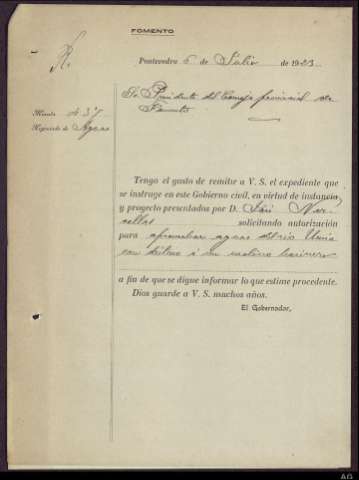 FOMENTO
Pontevedra 6 de Julio de 1923.
Sr. Presidente del Consejo provincial de
Fomento
Minuta 437
Negociado de Aguas
Tengo el gusto de remitir a V. S. el expediente que
se instruye en este Gobierno civil, en virtud de instancia
y proyecto presentados por D. José
solicitando autorización
para aprovechar aguas del rio Umia
con destino á un molino harinero
a fin de que se digne informar lo que estime procedente.
Dios guarde a V. S. muchos años.
El Gobernador,